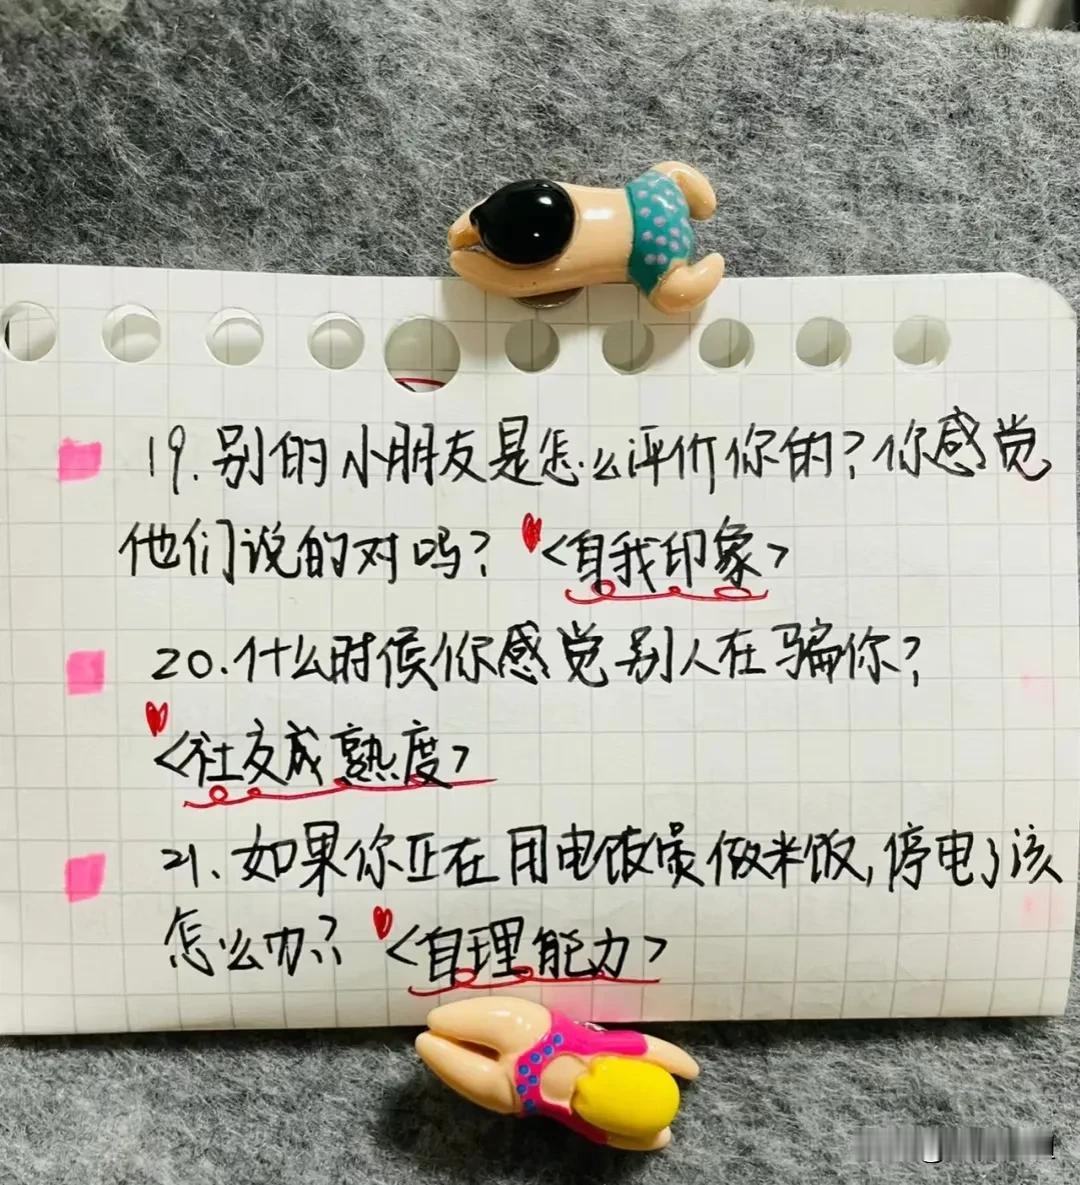 19.别的小朋友是怎么评价你的?你感觉
他们说的对吗?<自我印象>
20.什么时候你感觉别人在骗你?
<社交成熟度>
21.如果你正在用电饭煲做米饭,停电了该
怎么办?<自理能力>